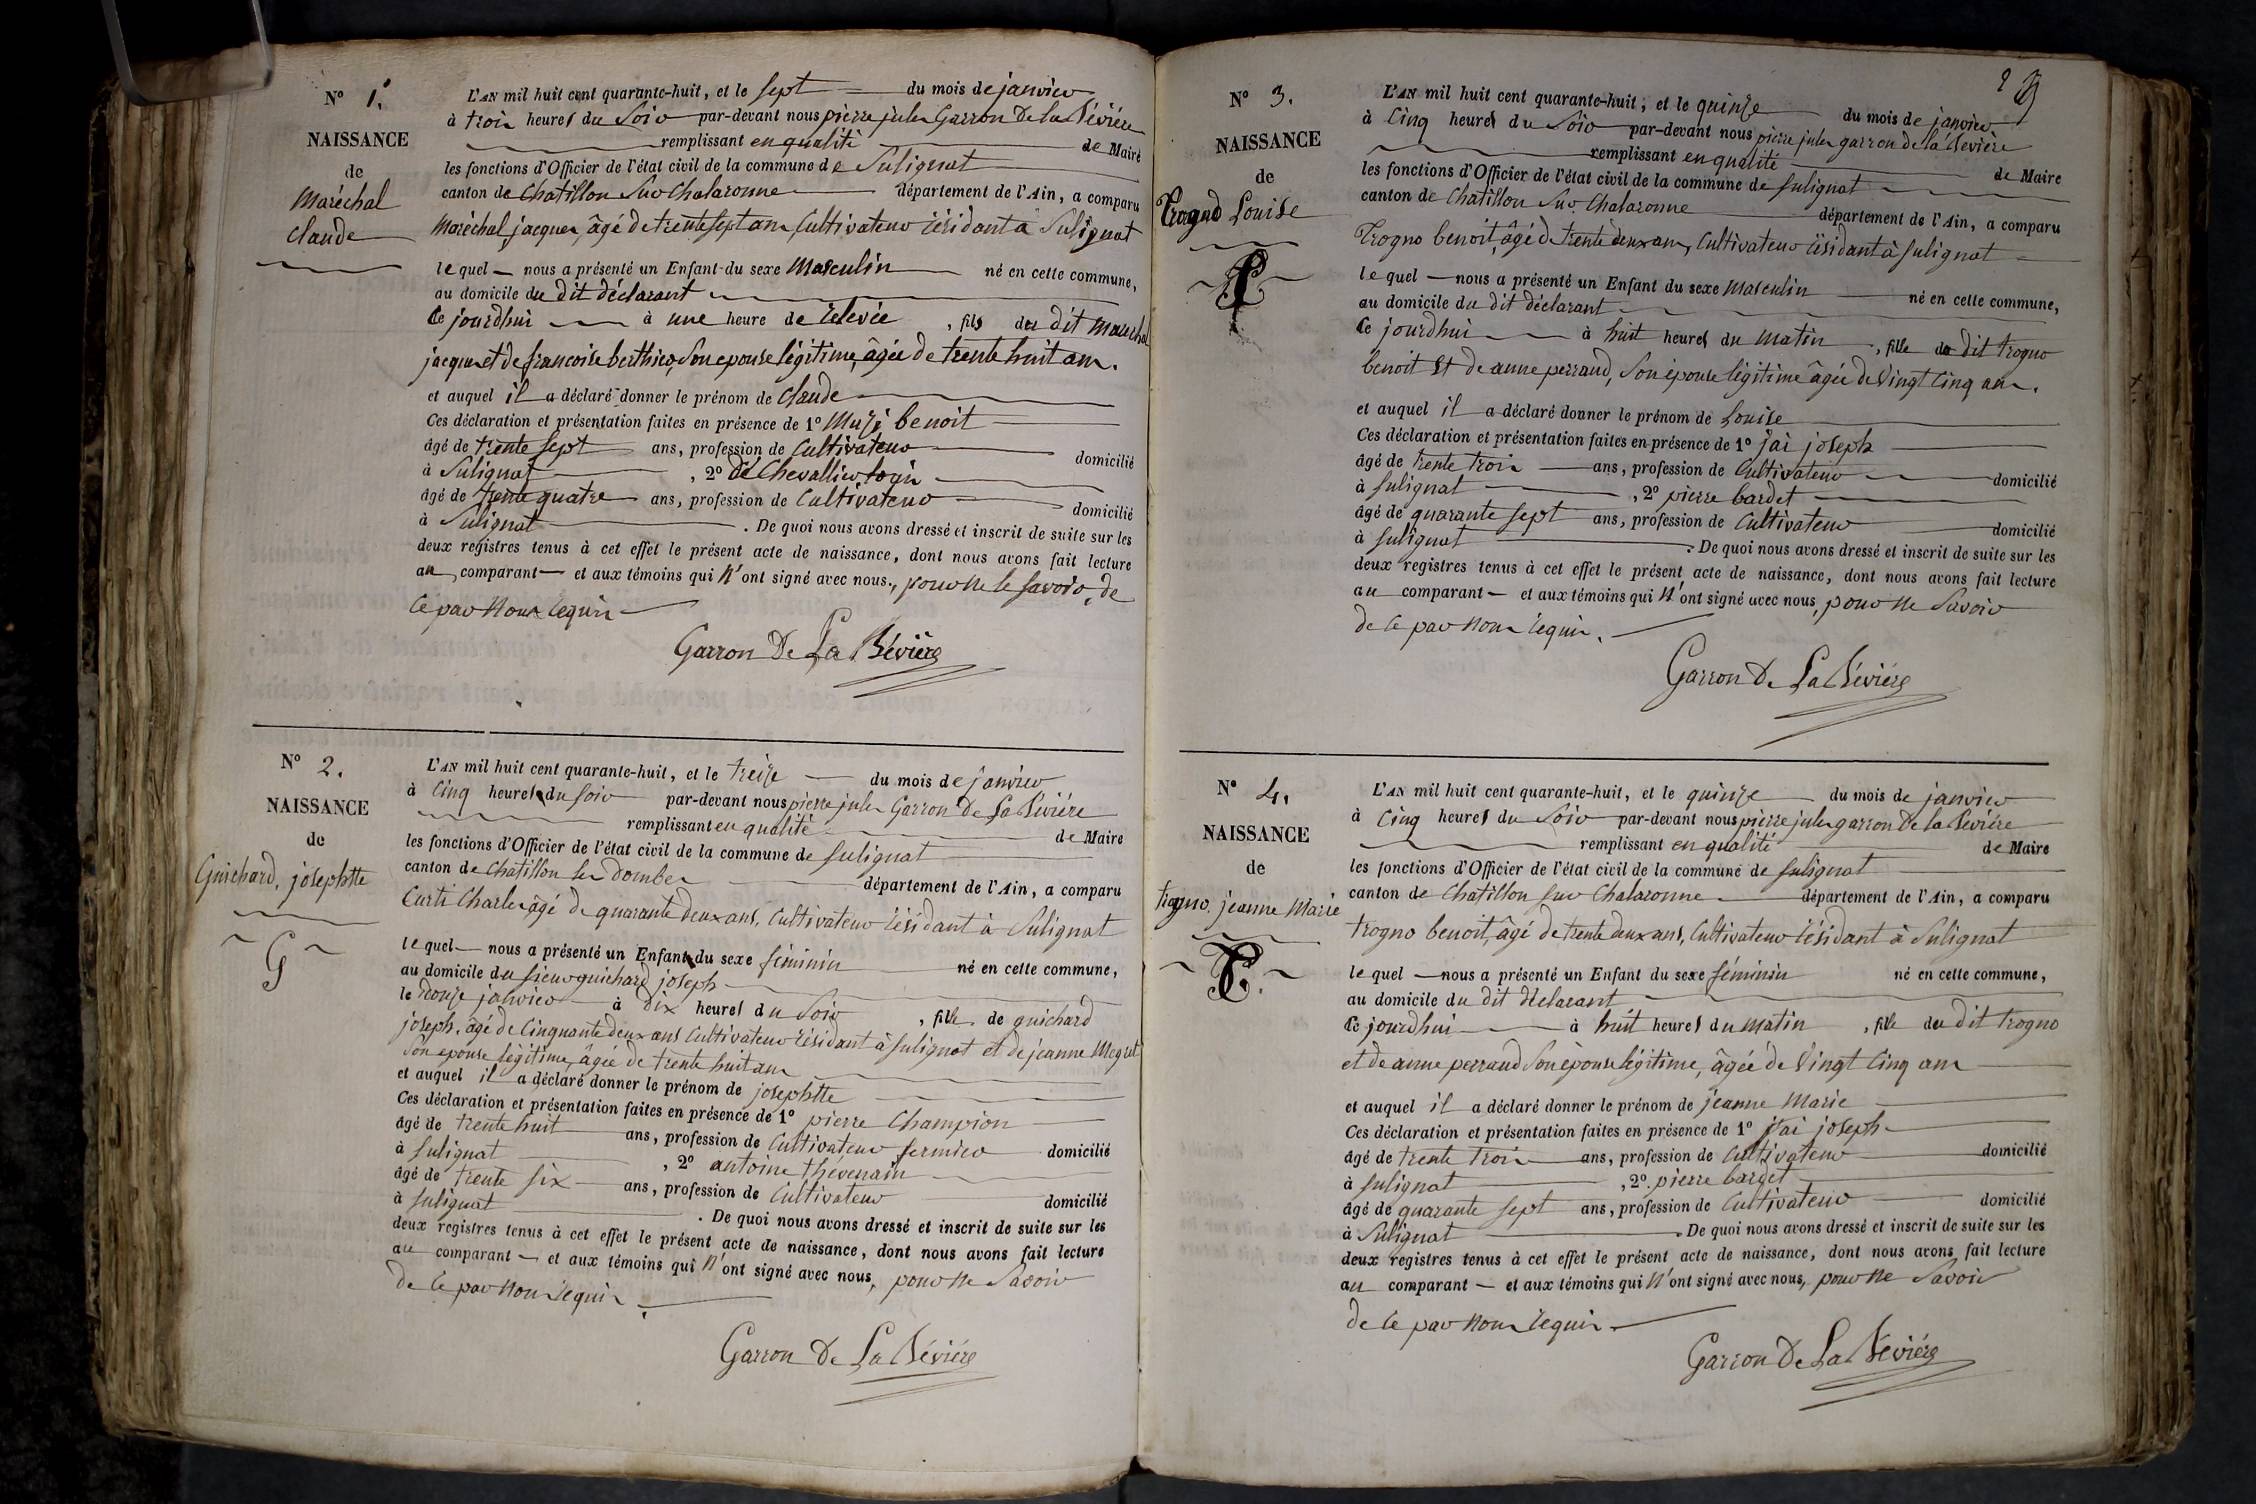 N° 1.
NAISSANCE
de
Maréchal
Claude
L'AN mil huit cent quarante-huit, et le sept du mois de janvier
à trois heures du Soir par-devant nous pierre jules Garron De la Bévière
remplissant en qualité de Maire
les fonctions d'Officier de l'état civil de la commune de Sulignat
canton de Chatillon Sur Chalaronne département de l'Ain, a comparu
Maréchal jacques, âgé de trente sept ans, Cultivateur résidant à Sulignat
lequel nous a présenté un Enfant du sexe Masculin né en cette commune,
au domicile du dit déclarant
Ce jourdhui à une heure de relevée, fils du dit Maréchal
jacques et de francoise berthier, Son epouse légitime, âgée de trente huit ans.
et auquel il a déclaré donner le prénom de Claude
Ces déclaration et présentation faites en présence de 1° Muzi benoit
âgé de trente sept ans, profession de Cultivateur domicilié
à Sulignat, 2°
âgé de trente quatre ans, profession de Cultivateur domicilié
à Sulignat. De quoi nous avons dressé et inscrit de suite sur les
deux registres tenus à cet effet le présent acte de naissance, dont nous avons fait lecture
au comparant et aux témoins qui n'ont signé avec nous, pour ne le savoir, de
ce par Nous requis
Garron De La Bévière
N° 2.
NAISSANCE
de
Guichard, josephtte
G
L'AN mil huit cent quarante-huit, et le treize du mois de janvier
à Cinq heures du soir par-devant nous pierre jules Garron De La Bévière
remplissant en qualité de Maire
les fonctions d'Officier de l'état civil de la commune de Sulignat
canton de Chatillon les Dombes département de l'Ain, a comparu
Curti Charles âgé de quarante deux ans, Cultivateur résidant à Sulignat
lequel nous a présenté un Enfant du sexe féminin né en cette commune,
au domicile du sieur guichard joseph
le douze janvier à dix heures du Soir, fille de guichard
joseph, âgé de Cinquante deux ans Cultivateur résidant à Sulignat et de jeanne Megret
Son epouse légitime, âgée de trente huit ans
et auquel il a déclaré donner le prénom de josephtte
Ces déclaration et présentation faites en présence de 1° pierre Champion
âgé de trente huit ans, profession de Cultivateur fermier domicilié
à Sulignat, 2° antoine thévenain
âgé de trente six ans, profession de Cultivateur domicilié
à Sulignat. De quoi nous avons dressé et inscrit de suite sur les
deux registres tenus à cet effet le présent acte de naissance, dont nous avons fait lecture
au comparant et aux témoins qui n'ont signé avec nous, pour ne Savoir
de Ce par Nous requis.
Garron De La Bévière
N° 3.
NAISSANCE
de
Trogno Louise
L'AN mil huit cent quarante-huit, et le quinze du mois de janvier
à Cinq heures du Soir par-devant nous pierre jules garron de la Bévière
remplissant en qualité de Maire
les fonctions d'Officier de l'état civil de la commune de Sulignat
canton de Chatillon Sur Chalaronne département de l'Ain, a comparu
Trogno benoit, âgé de trente deux ans, Cultivateur résidant à Sulignat
lequel nous a présenté un Enfant du sexe Masculin né en cette commune,
au domicile du dit déclarant
Ce jourdhui à huit heures du Matin, fille du dit trogno
benoit Et de anne perraud, Son épouse légitime âgée de Vingt Cinq ans.
et auquel il a déclaré donner le prénom de Louise
Ces déclaration et présentation faites en présence de 1° jai joseph
âgé de trente trois ans, profession de Cultivateur domicilié
à Sulignat, 2° pierre bardet
âgé de quarante sept ans, profession de Cultivateur domicilié
à Sulignat. De quoi nous avons dressé et inscrit de suite sur les
deux registres tenus à cet effet le présent acte de naissance, dont nous avons fait lecture
au comparant et aux témoins qui n'ont signé avec nous, pour ne Savoir
de Ce par Nous requis.
Garron De La Bévière
N° 4.
NAISSANCE
de
trogno. jeanne Marie
T.
L'AN mil huit cent quarante-huit, et le quinze du mois de janvier
à Cinq heures du Soir par-devant nous pierre jules garron de la Bévière
remplissant en qualité de Maire
les fonctions d'Officier de l'état civil de la commune de Sulignat
canton de Chatillon Sur Chalaronne département de l'Ain, a comparu
trogno benoit, âgé de trente deux ans, Cultivateur résidant à Sulignat
lequel nous a présenté un Enfant du sexe féminin né en cette commune,
au domicile du dit déclarant
Ce jourdhui à huit heures du Matin, fille du dit trogno
et de anne perraud Son épouse légitime, âgée de Vingt Cinq ans
et auquel il a déclaré donner le prénom de jeanne Marie
Ces déclaration et présentation faites en présence de 1° jai joseph
âgé de trente trois ans, profession de Cultivateur domicilié
à Sulignat, 2°. pierre bardet
âgé de quarante sept ans, profession de Cultivateur domicilié
à Sulignat. De quoi nous avons dressé et inscrit de suite sur les
deux registres tenus à cet effet le présent acte de naissance, dont nous avons fait lecture
au comparant et aux témoins qui n'ont signé avec nous, pour ne Savoir
de Ce par Nous requis.
Garron De La Bévière